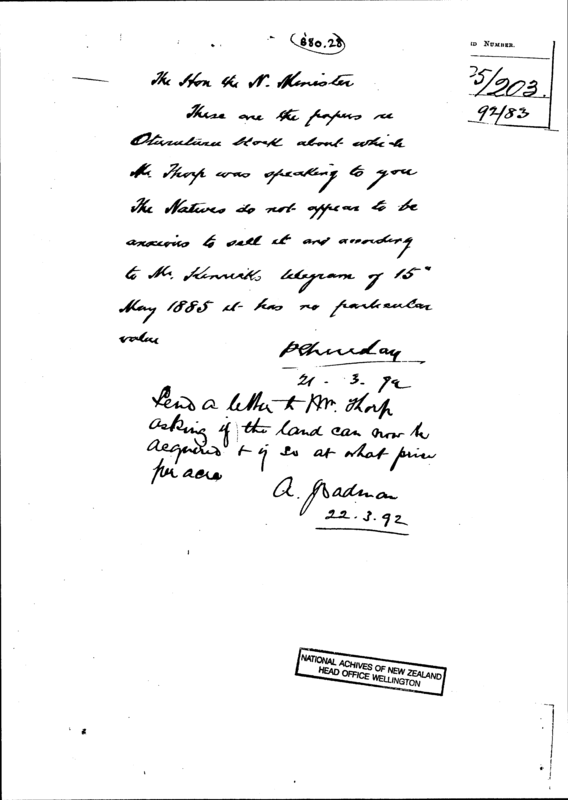 680.28
ID NUMBER.
5/203.
92/83
The Hon the N. Minister
These are the papers re
block about which
Mr Thorp was speaking to you
The Natives do not appear to be
anxious to sell it and according
to Mr. Kenrick's telegram of 15th
May 1885 it has no particular
value
PSheridan
21 - 3. 92
Send a letter to Mr. Thorp
asking if the land can now be
acquired & if so at what price
per acre
A. Cadman
22.3.92
NATIONAL ACHIVES OF NEW ZEALAND
HEAD OFFICE WELLINGTON